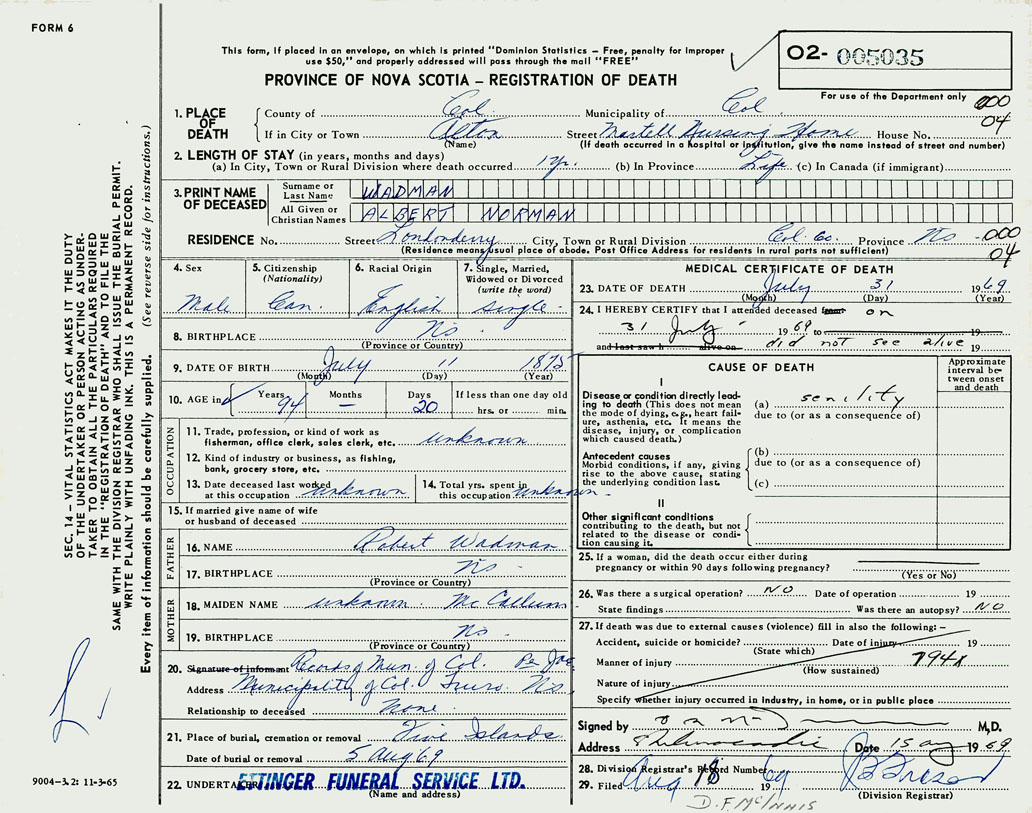 FORM 6
This form, if placed in an envelope, on which is printed "Dominion Statistics – Free, penalty for improper
use $50," and properly addressed will pass through the mail "FREE"
PROVINCE OF NOVA SCOTIA – REGISTRATION OF DEATH
02- 005035
For use of the Department only 000
04
1. PLACE OF DEATH County of Col. Municipality of Col
If in City or Town Alton Street Martell Nursing Home House No.
(Name) (If death occurred in a hospital or institution, give the name instead of street and number)
2. LENGTH OF STAY (in years, months and days)
(a) In City, Town or Rural Division where death occurred 1 yr. (b) In Province Life (c) In Canada (if immigrant)
3. PRINT NAME OF DECEASED Surname or Last Name WADMAN
All Given or Christian Names ALBERT NORMAN
RESIDENCE No. Street Londonderry City, Town or Rural Division Col. Co. Province NS -000
(Residence means usual place of abode. Post Office Address for residents in rural parts not sufficient) 04
4. Sex 5. Citizenship (Nationality) 6. Racial Origin 7. Single, Married, Widowed or Divorced (write the word)
Male Can. English single
8. BIRTHPLACE NS
(Province or Country)
9. DATE OF BIRTH July 11 1875
(Month) (Day) (Year)
10. AGE in Years Months Days If less than one day old
94 – 20 hrs. or min.
OCCUPATION
11. Trade, profession, or kind of work as
fisherman, office clerk, sales clerk, etc. unknown
12. Kind of industry or business, as fishing,
bank, grocery store, etc.
13. Date deceased last worked
at this occupation unknown
14. Total yrs. spent in
this occupation unknown
15. If married give name of wife
or husband of deceased
FATHER
16. NAME Robert Wadman
17. BIRTHPLACE NS
(Province or Country)
MOTHER
18. MAIDEN NAME unknown McCallum
19. BIRTHPLACE NS
(Province or Country)
20. Signature of informant Records of Mun. of Col. Per
Address Municipality of Col. Truro. NS
Relationship to deceased None
21. Place of burial, cremation or removal Five Islands
Date of burial or removal 5 Aug 69
22. UNDERTAKER ETTINGER FUNERAL SERVICE LTD.
(Name and address)
MEDICAL CERTIFICATE OF DEATH
23. DATE OF DEATH July 31 1969
(Month) (Day) (Year)
24. I HEREBY CERTIFY that I attended deceased from on
31 July 1969 to 19
and last saw h alive on did not see alive 19
CAUSE OF DEATH
Approximate interval between onset and death
I
Disease or condition directly leading to death (This does not mean the mode of dying, e.g., heart failure, asthenia, etc. It means the disease, injury, or complication which caused death.)
(a) senility
due to (or as a consequence of)
Antecedent causes
Morbid conditions, if any, giving rise to the above cause, stating the underlying condition last.
(b)
due to (or as a consequence of)
(c)
II
Other significant conditions
contributing to the death, but not related to the disease or condition causing it.
25. If a woman, did the death occur either during
pregnancy or within 90 days following pregnancy?
(Yes or No)
26. Was there a surgical operation? NO Date of operation 19
State findings Was there an autopsy? NO
27. If death was due to external causes (violence) fill in also the following: –
Accident, suicide or homicide? Date of injury 19
(State which)
Manner of injury 794X
(How sustained)
Nature of injury
Specify whether injury occurred in industry, in home, or in public place
Signed by M.D.
Address Shubenacadie Date 15 Aug 1969
28. Division Registrar's Record Number
29. Filed Aug 18 1969
(Division Registrar)
D.F. McInnis
SEC. 14 – VITAL STATISTICS ACT MAKES IT THE DUTY
OF THE UNDERTAKER OR PERSON ACTING AS UNDER-
TAKER TO OBTAIN ALL THE PARTICULARS REQUIRED
IN THE "REGISTRATION OF DEATH" AND TO FILE THE
SAME WITH THE DIVISION REGISTRAR WHO SHALL ISSUE THE BURIAL PERMIT.
WRITE PLAINLY WITH UNFADING INK. THIS IS A PERMANENT RECORD.
Every item of information should be carefully supplied. (See reverse side for instructions.)
9004-3.2: 11-3-65